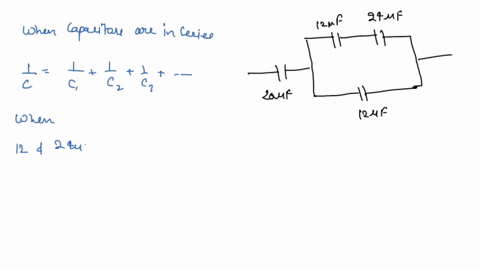 When Capacitors are in Series
1/C = 1/C1 + 1/C2 + 1/C3 + ---
When
12 & 24μ
12μF
24μF
20μF
12μF